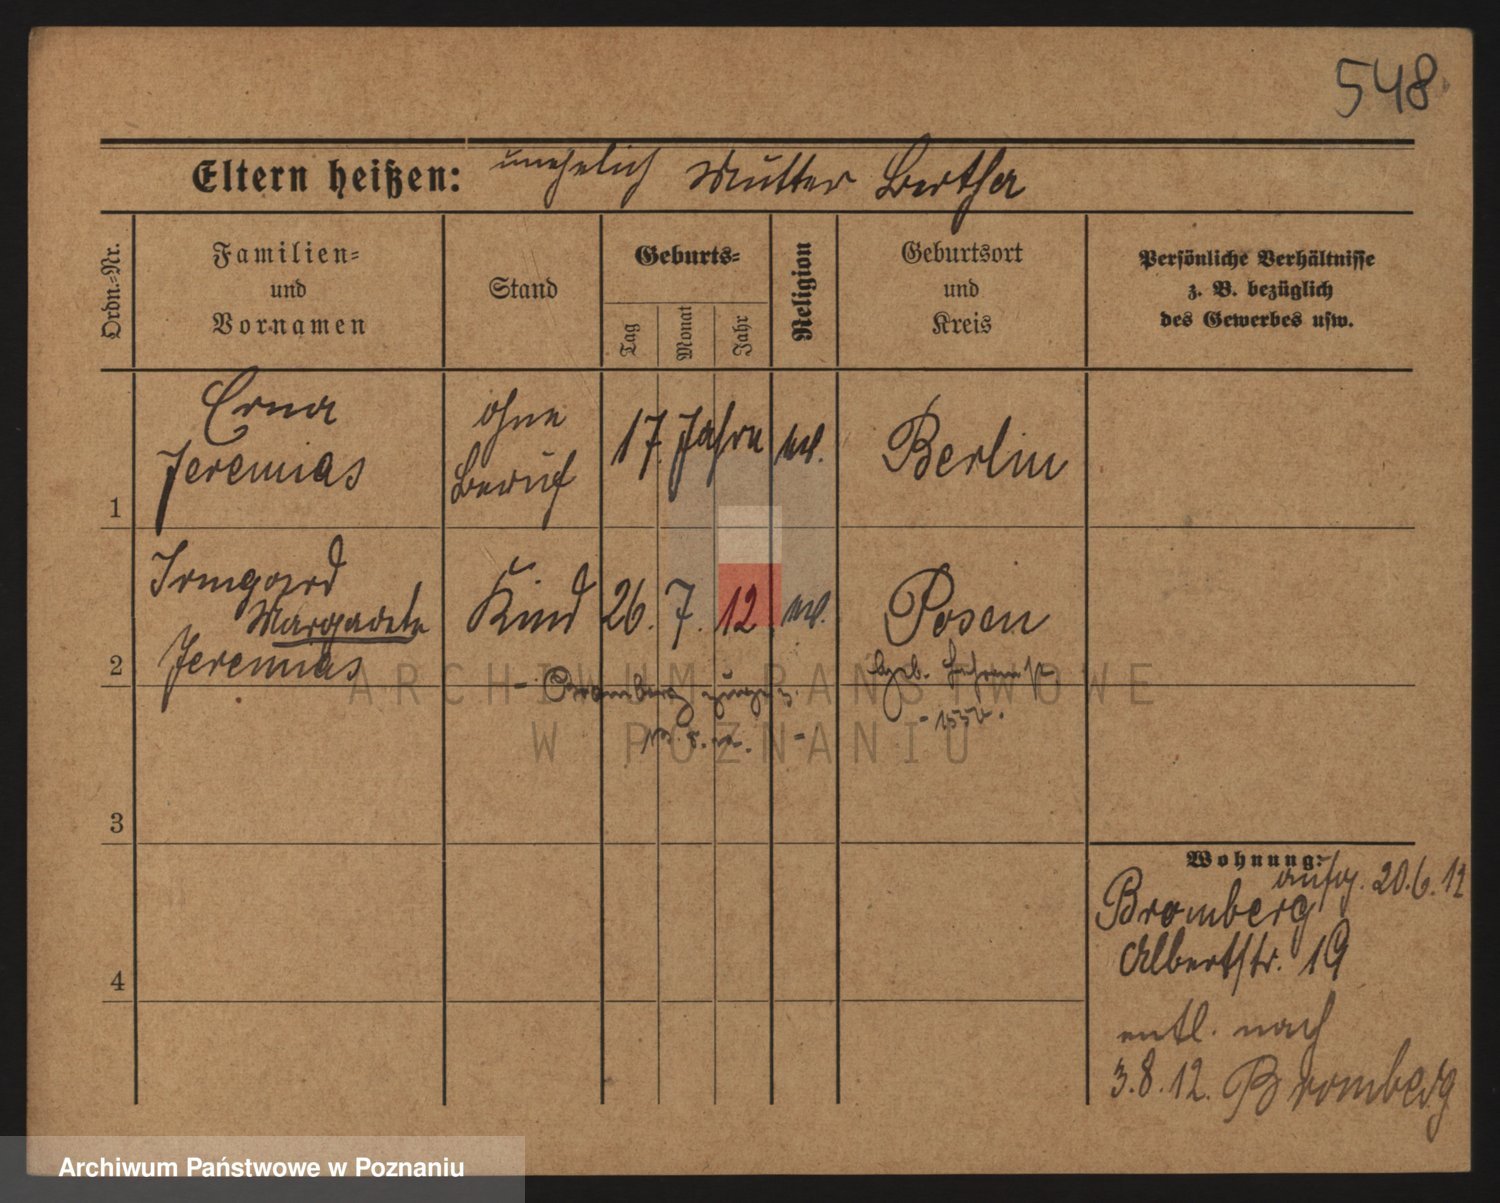 548
Eltern heißen: unehelich Mutter Bertha
Ordn.-Nr.
Familien-
und
Vornamen
Stand
Geburts-
Tag
Monat
Jahr
Religion
Geburtsort
und
Kreis
Persönliche Verhältnisse
z. B. bezüglich
des Gewerbes usw.
1
Erna
Jeremias
ohne
Beruf
17 Jahre
ev.
Berlin
2
Irmgard
Margarete
Jeremias
Kind
26. 7. 12.
ev.
Posen
- Bromberg
3
4
Wohnung:
aufg. 20.6.12
Bromberg
Albertstr. 19
entl. nach
3.8.12. Bromberg
ARCHIWUM PAŃSTWOWE
W POZNANIU
Archiwum Państwowe w Poznaniu